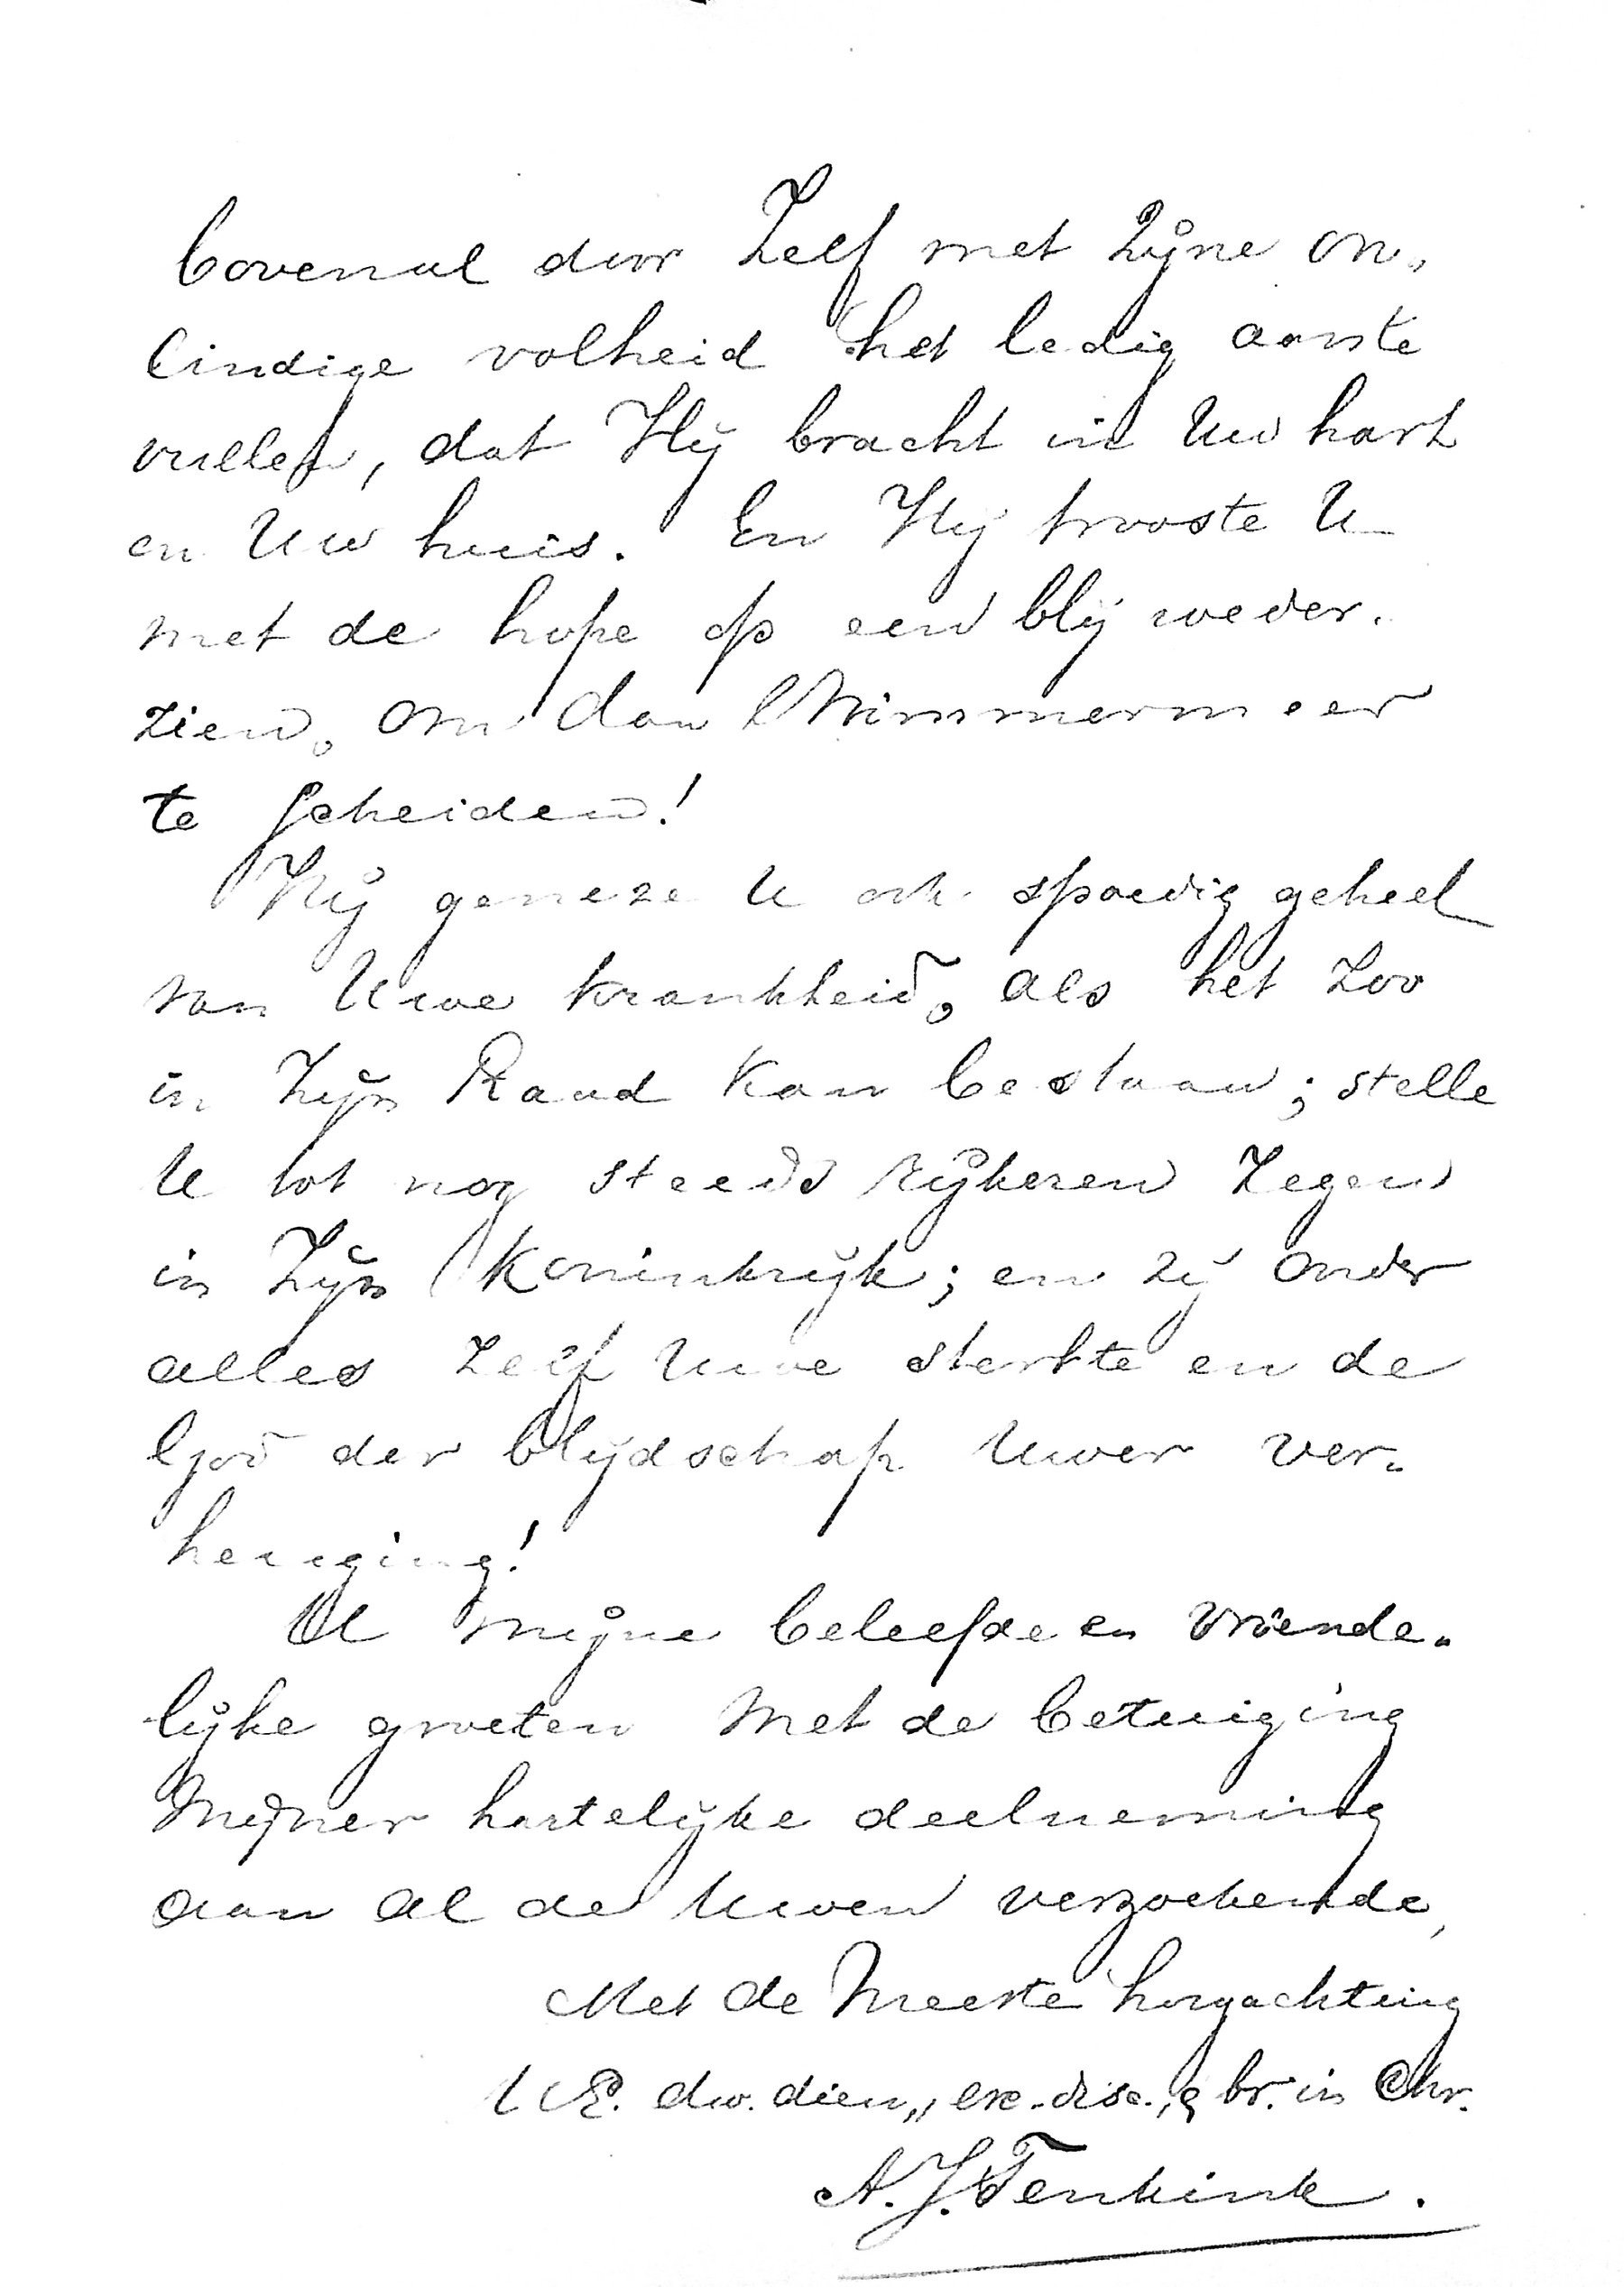 bovenal door Zelf met Zijne on-
eindige volheid het ledig aan te
vullen, dat Hij bracht in Uw hart
en Uw huis. En Hij trooste U
met de hope op een blij weder-
zien, om dan nimmermeer
te scheiden!
Hij geneze U ook spoedig geheel
van Uwe krankheid, als het zoo
in Zijn Raad kan bestaan; stelle
U tot nog steeds rijkeren zegen
in Zijn Koninkrijk; en zij onder
alles Zelf Uwe sterkte en de
God der blijdschap Uwer ver-
heuging!
U mijne beleefde en vriende-
lijke groeten met de betuiging
mijner hartelijke deelneming
aan al de Uwen verzoekende,
Met de meeste hoogachting
UE. dw. dien., exc. disc., & br. in Chr.
A. J. Tenkink.